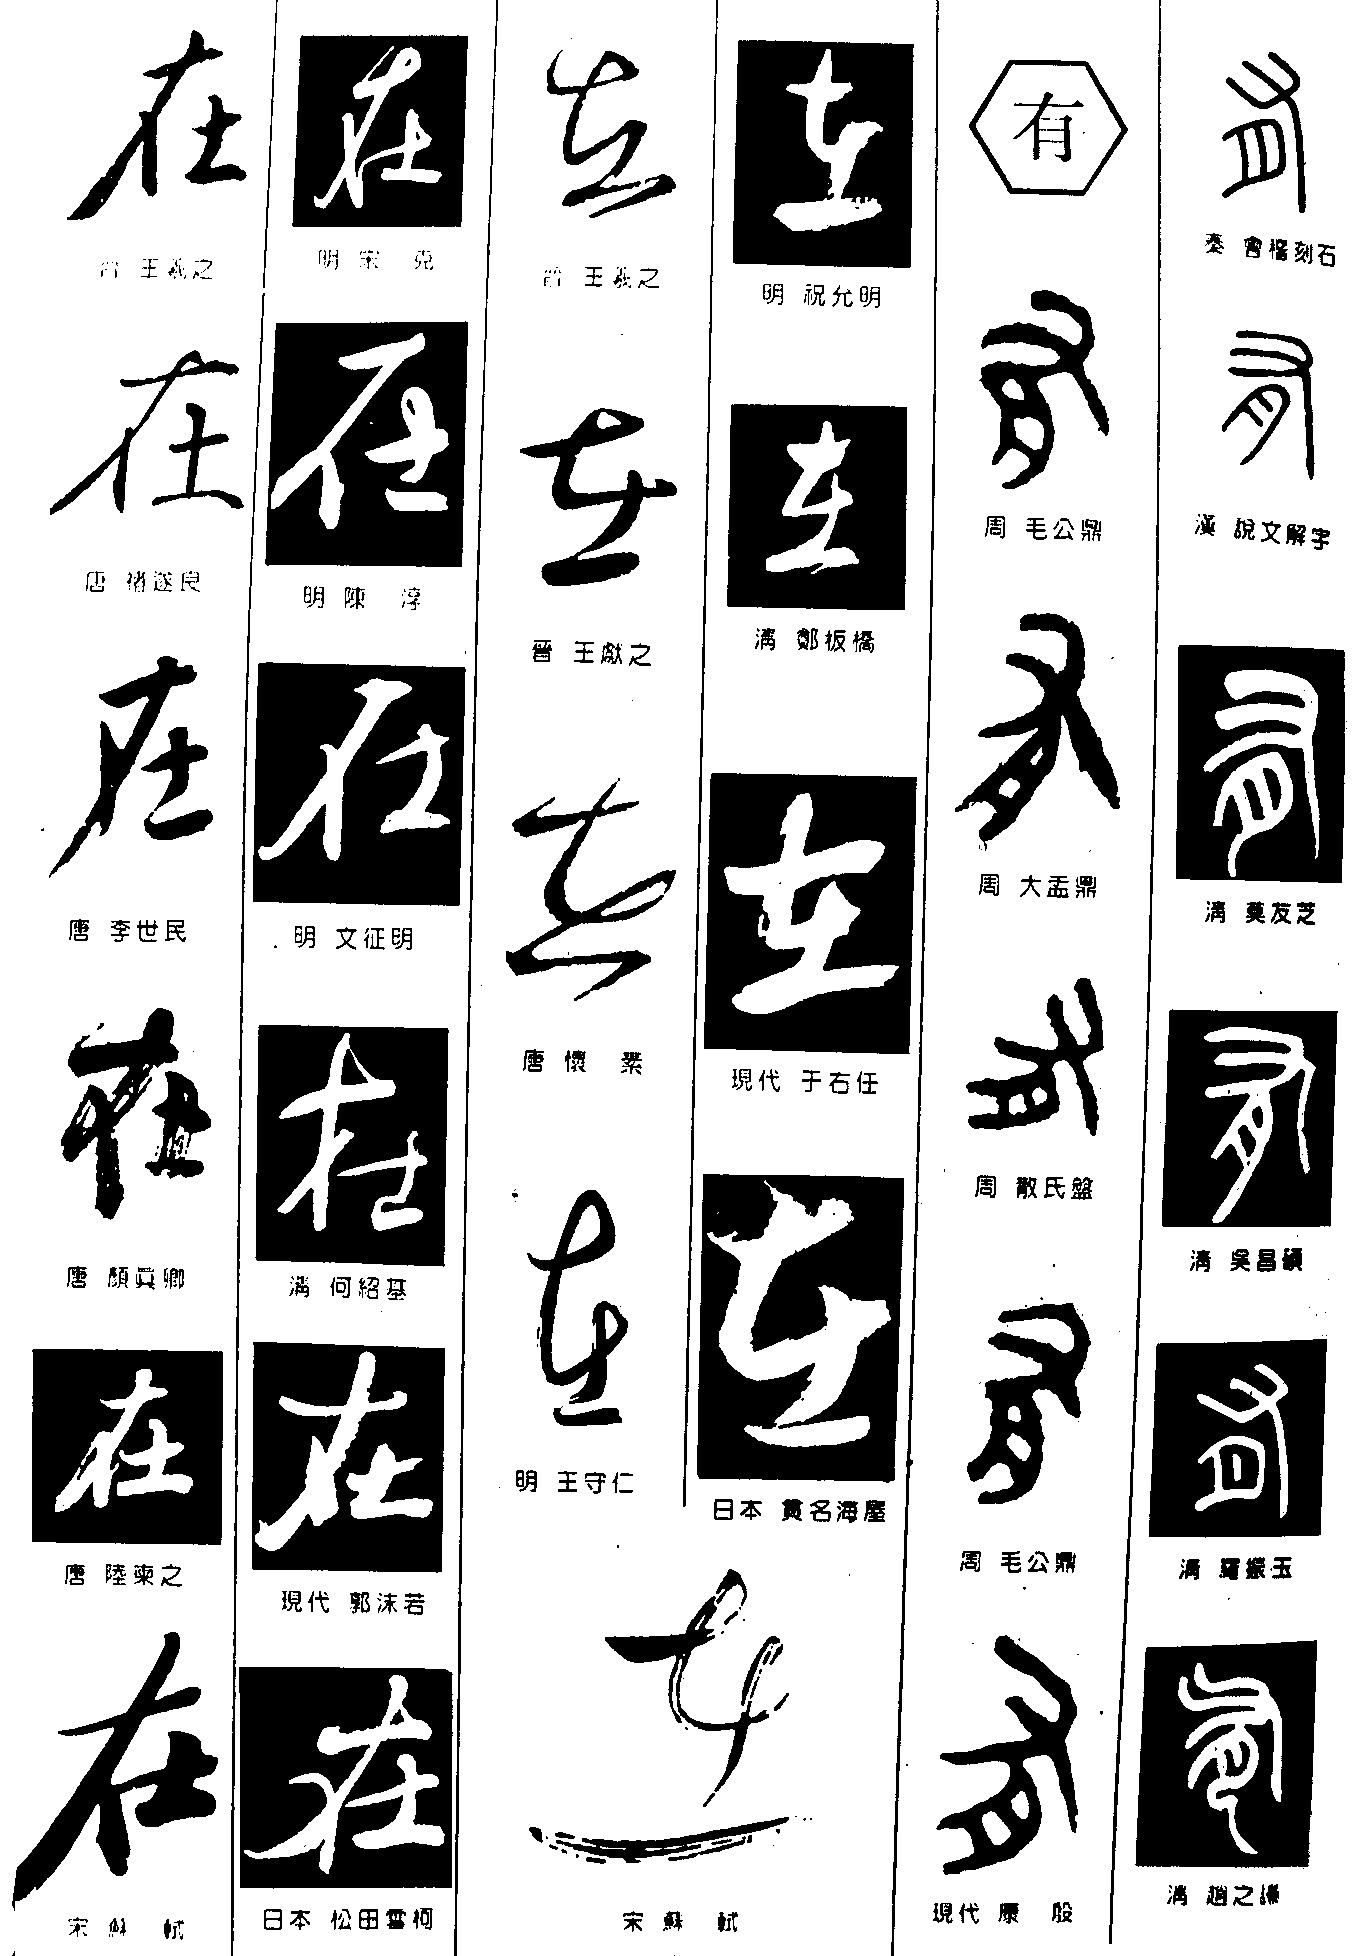 在
晉 王羲之
在
唐 褚遂良
在
唐 李世民
在
唐 顏真卿
在
唐 陸柬之
在
宋 蘇 軾
在
明 宋 克
在
明 陳 淳
在
明 文征明
在
清 何紹基
在
現代 郭沫若
在
日本 松田雪柯
在
晉 王羲之
在
晉 王獻之
在
唐 懷 素
在
明 王守仁
在
宋 蘇 軾
在
明 祝允明
在
清 鄭板橋
在
現代 于右任
在
日本 貫名海屋
有
有
周 毛公鼎
有
周 大盂鼎
有
周 散氏盤
有
周 毛公鼎
有
現代 康 殷
有
秦 會稽刻石
有
漢 說文解字
有
清 莫友芝
有
清 吳昌碩
有
清 羅振玉
有
清 趙之謙